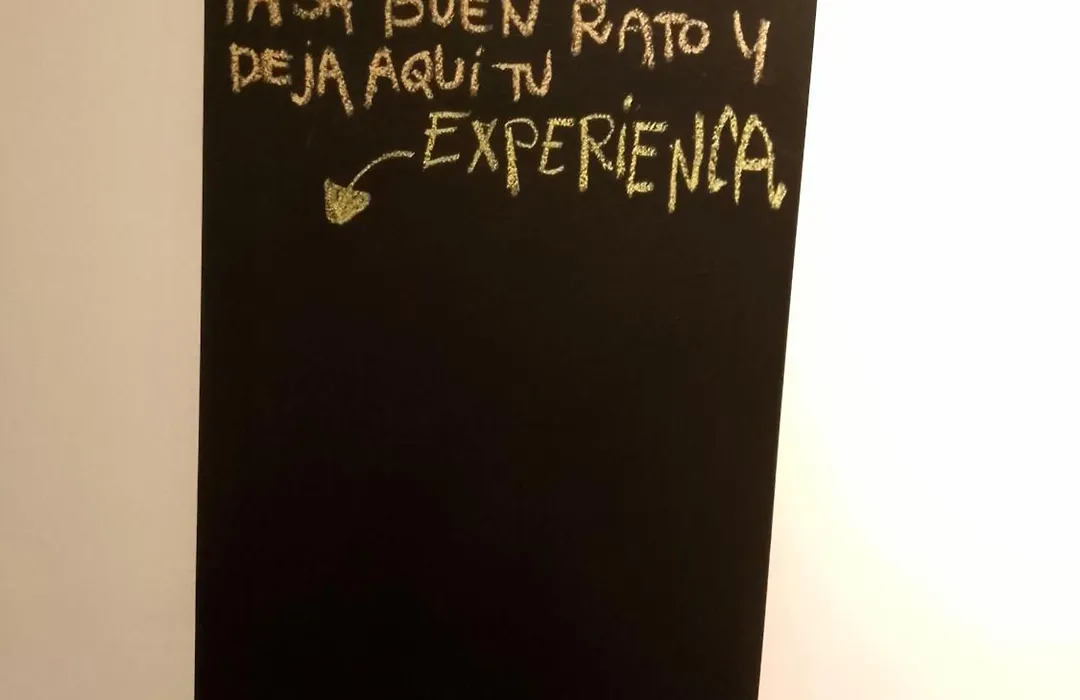 PASA BUEN RATO Y
DEJA AQUÍ TU
EXPERIENCA